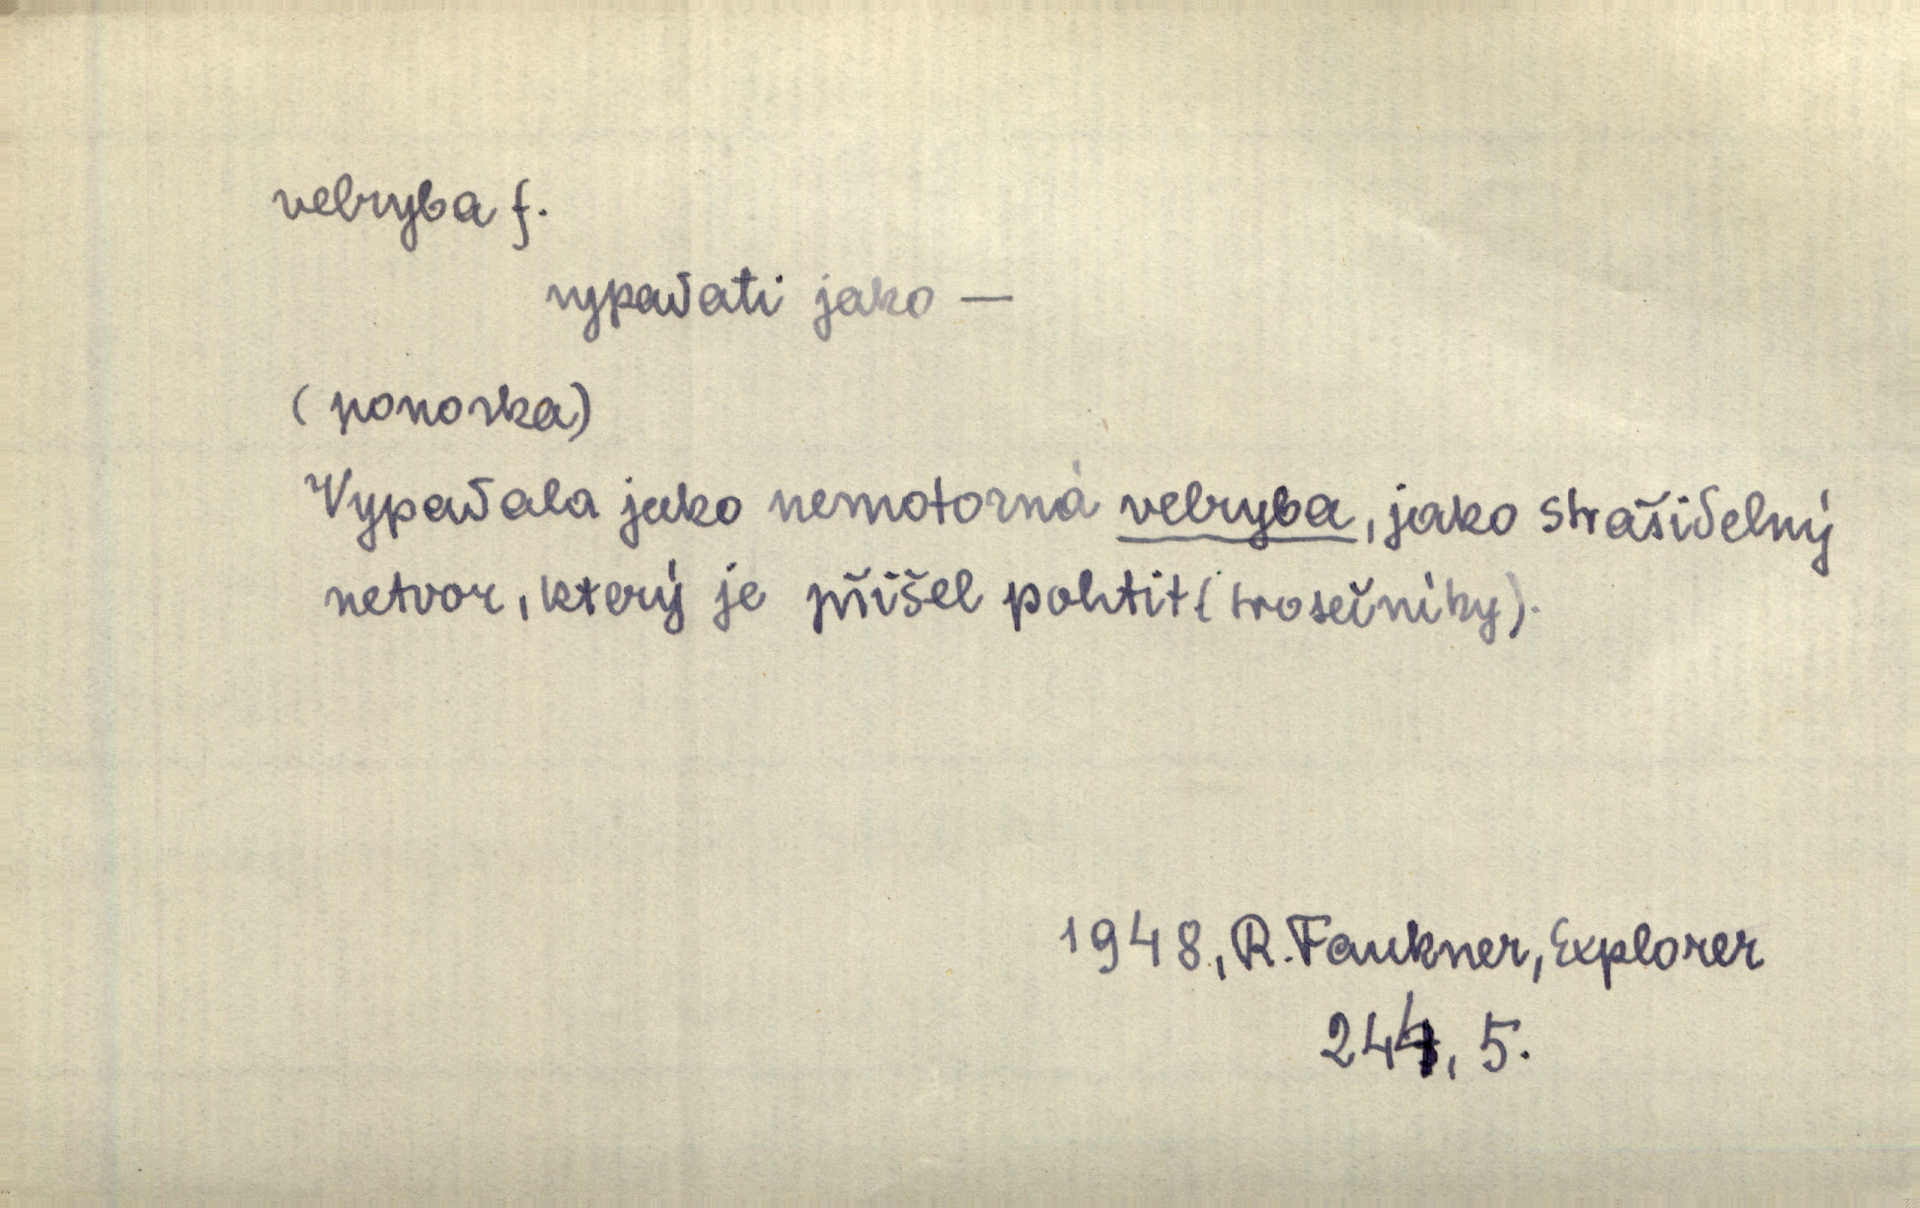 velryba f.
vypadati jako —
(ponorka)
Vypadala jako nemotorná velryba, jako strašidelný
netvor, který je přišel pohltit (trosečníky).
1948, R. Faukner, Explorer
244, 5.